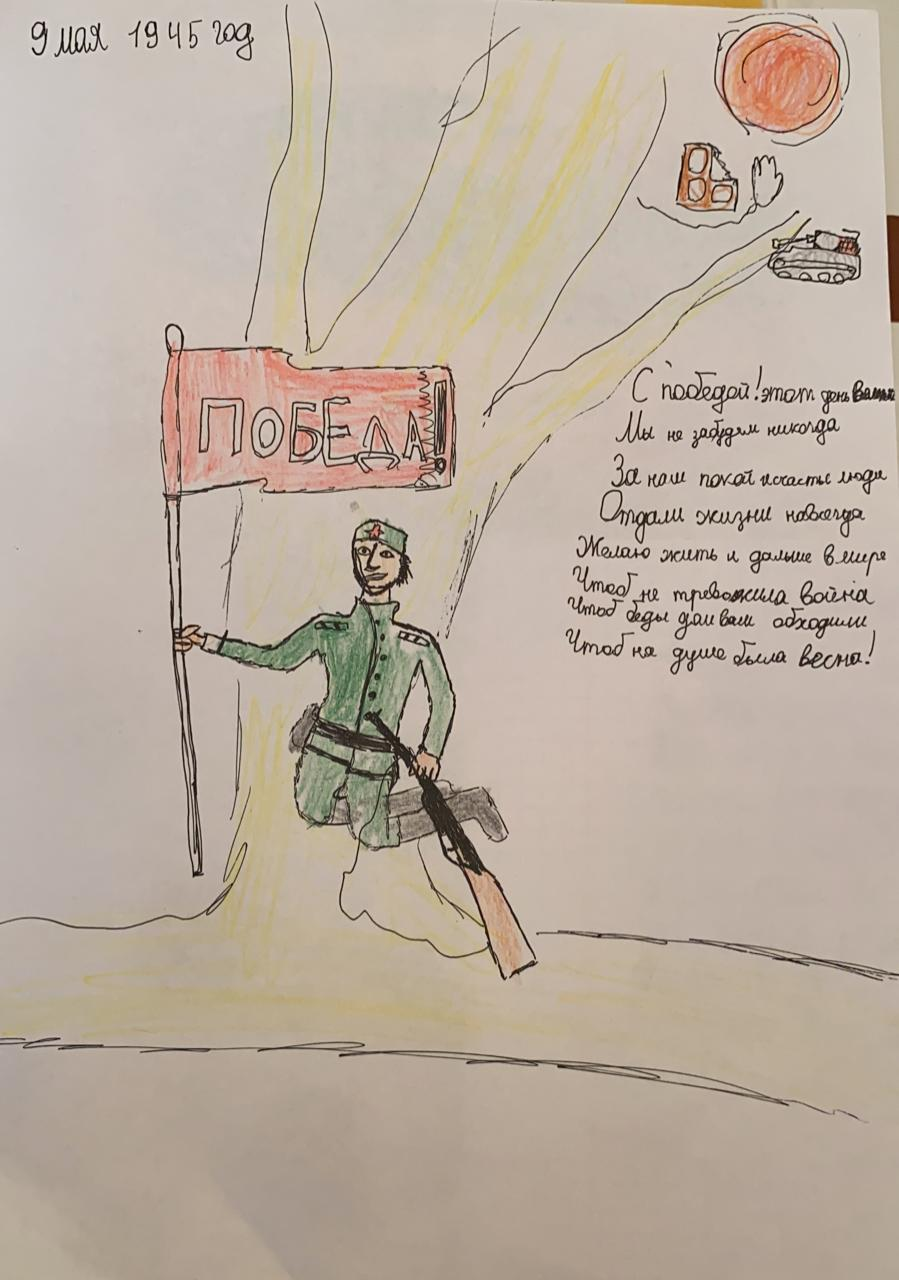 9 мая 1945 год
ПОБЕДА!
С победой! этот день
Мы не забудем никогда
За наш покой и счастье люди
Отдали жизни навсегда
Желаю жить и дальше в мире
Чтоб не тревожила война
Чтоб беды дом вам обходили
Чтоб на душе была весна!